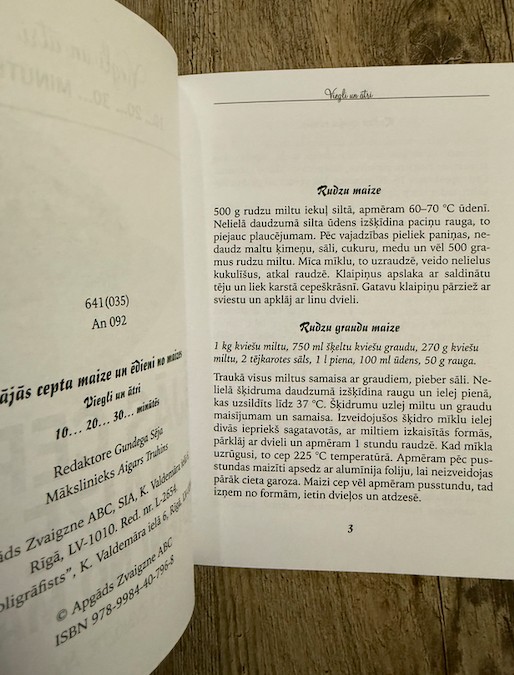 641(035)
An 092
cepta maize un ēdieni no maizes
Viegli un ātri
10... 20... 30... minūtēs
Redaktore Gundega Sēja
Mākslinieks Aigars Truhins
Zvaigzne ABC, SIA, K. Valdemāra
Rīgā, LV-1010. Red. nr. L-2654.
K. Valdemāra ielā 6, Rīgā,
© Apgāds Zvaigzne ABC
ISBN 978-9984-40-796-8
Viegli un ātri
Rudzu maize
500 g rudzu miltu iekuļ siltā, apmēram 60–70 °C ūdenī.
Nelielā daudzumā silta ūdens izšķīdina paciņu rauga, to
piejauc plaucējumam. Pēc vajadzības pieliek paniņas, ne-
daudz maltu ķimeņu, sāli, cukuru, medu un vēl 500 gra-
mus rudzu miltu. Mīca mīklu, to uzraudzē, veido nelielus
kukulīšus, atkal raudzē. Klaipiņus apslaka ar saldinātu
tēju un liek karstā cepeškrāsnī. Gatavu klaipiņu pārziež ar
sviestu un apklāj ar linu dvieli.
Rudzu graudu maize
1 kg kviešu miltu, 750 ml šķeltu kviešu graudu, 270 g kviešu
miltu, 2 tējkarotes sāls, 1 l piena, 100 ml ūdens, 50 g rauga.
Traukā visus miltus samaisa ar graudiem, pieber sāli. Ne-
lielā šķidruma daudzumā izšķīdina raugu un ielej pienā,
kas uzsildīts līdz 37 °C. Šķidrumu uzlej miltu un graudu
maisījumam un samaisa. Izveidojušos šķidro mīklu ielej
divās iepriekš sagatavotās, ar miltiem izkaisītās formās,
pārklāj ar dvieli un apmēram 1 stundu raudzē. Kad mīkla
uzrūgusi, to cep 225 °C temperatūrā. Apmēram pēc pus-
stundas maizīti apsedz ar alumīnija foliju, lai neizveidojas
pārāk cieta garoza. Maizi cep vēl apmēram pusstundu, tad
izņem no formām, ietin dvieļos un atdzesē.
3